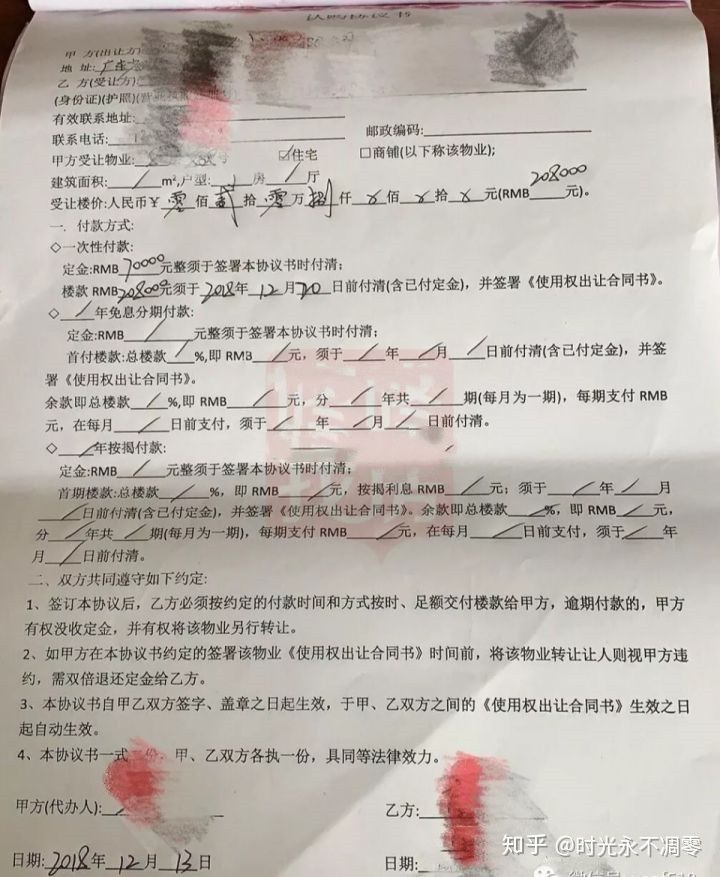 认购协议书
甲 方(出让方)
地 址:广东
乙 方(受让方):
(身份证)(护照)
有效联系地址:
联系电话: 邮政编码:
甲方受让物业: 号 ☑住宅 □商铺(以下称该物业);
建筑面积: / m²,户型: 1 房 / 厅
受让楼价:人民币¥ 零 佰 贰 拾 零 万 捌 仟 x 佰 x 拾 x 元(RMB 208000 元)。
一. 付款方式:
◇一次性付款:
定金:RMB 70000 元整须于签署本协议书时付清;
楼款 RMB 208000 元须于 2018 年 12 月 20 日前付清(含已付定金)，并签署《使用权出让合同书》。
◇ / 年免息分期付款:
定金:RMB / 元整须于签署本协议书时付清;
首付楼款:总楼款 / %,即 RMB / 元，须于 / 年 / 月 / 日前付清(含已付定金)，并签
署《使用权出让合同书》。
余款即总楼款 / %,即 RMB / 元，分 / 年共 / 期(每月为一期)，每期支付 RMB
元，在每月 / 日前支付，须于 / 年 / 月 / 日前付清。
◇ / 年按揭付款:
定金:RMB / 元整须于签署本协议书时付清;
首期楼款:总楼款 / %，即 RMB / 元，按揭利息 RMB / 元；须于 / 年 / 月
/ 日前付清(含已付定金)，并签署《使用权出让合同书》。余款即总楼款 / %，即 RMB / 元，
分 / 年共 / 期(每月为一期)，每期支付 RMB / 元，在每月 / 日前支付，须于 / 年
月 / 日前付清。
二、双方共同遵守如下约定:
1、签订本协议后，乙方必须按约定的付款时间和方式按时、足额交付楼款给甲方，逾期付款的，甲方
有权没收定金，并有权将该物业另行转让。
2、如甲方在本协议书约定的签署该物业《使用权出让合同书》时间前，将该物业转让让人则视甲方违
约，需双倍退还定金给乙方。
3、本协议书自甲乙双方签字、盖章之日起生效，于甲、乙双方之间的《使用权出让合同书》生效之日
起自动生效。
4、本协议书一式 份，甲、乙双方各执一份，具同等法律效力。
甲方(代办人): 乙方:
日期: 2018 年 12 月 13 日 日期:
知乎 @时光永不凋零